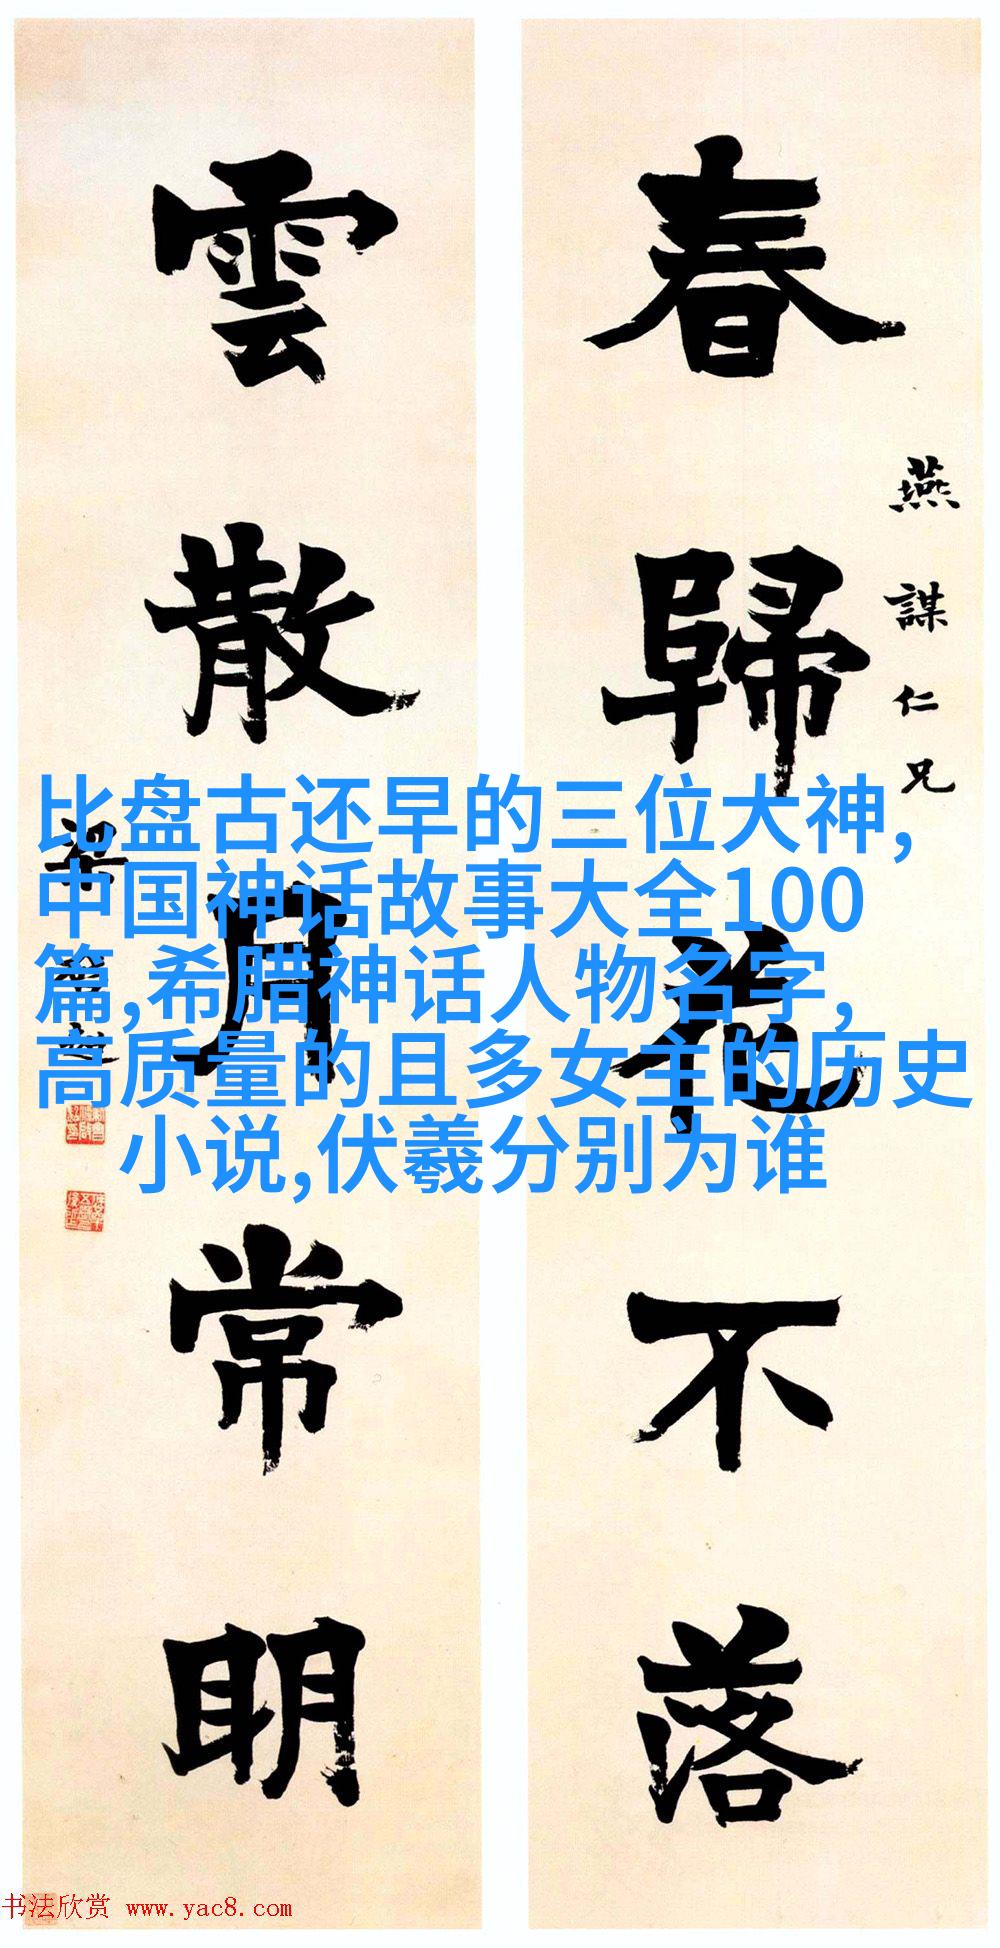 春歸花不落
燕謀仁兄
雲散月常明
梁啟超
比盘古还早的三位大神,
中国神话故事大全100
篇,希腊神话人物名字,
高质量的且多女主的历史
小说,伏羲分别为谁
书法欣赏 www.yac8.com